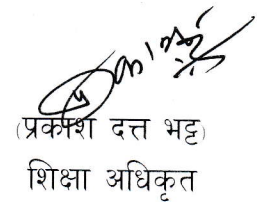 (प्रकाश दत्त भट्ट)
शिक्षा अधिकृत